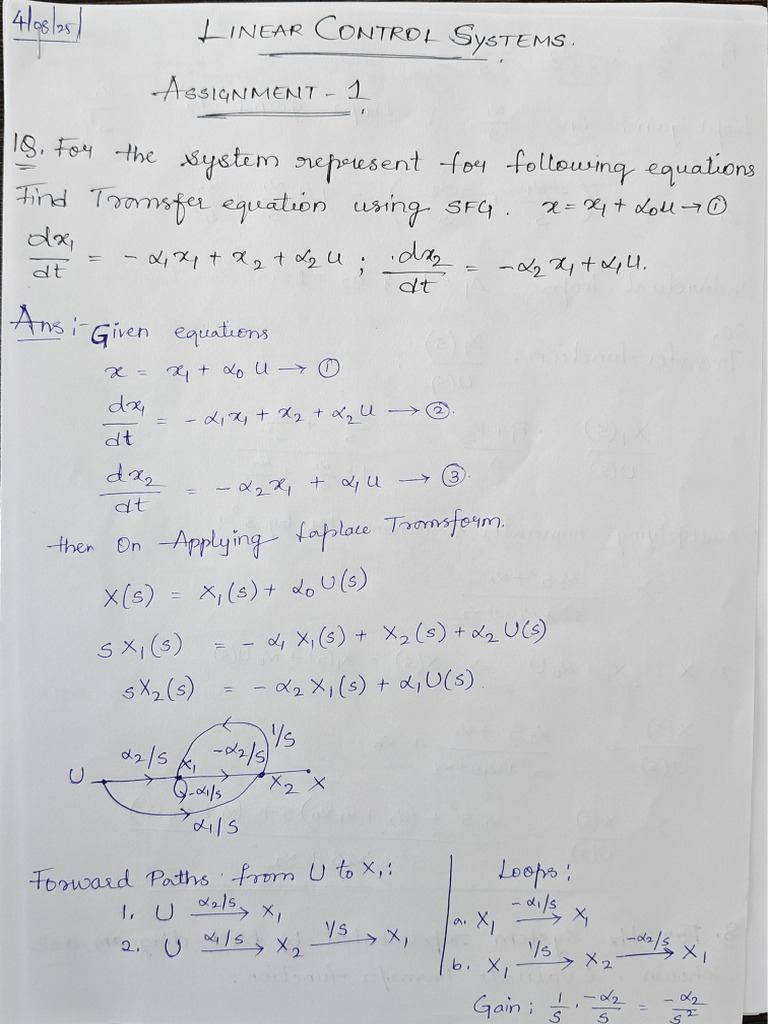 4/08/25
LINEAR CONTROL SYSTEMS.
ASSIGNMENT - 1
1Q. For the system represent for following equations
Find Transfer equation using SFG. x = x₁ + α₀u → ①
dx₁/dt = - α₁x₁ + x₂ + α₂u ; dx₂/dt = -α₂x₁ + α₁u.
Ans :- Given equations
x = x₁ + α₀ u → ①
dx₁/dt = - α₁x₁ + x₂ + α₂u → ②.
dx₂/dt = - α₂x₁ + α₁u → ③.
then On Applying Laplace Transform.
X(s) = X₁(s) + α₀ U(s)
s X₁(s) = - α₁ X₁(s) + X₂(s) + α₂ U(s)
sX₂(s) = - α₂ X₁(s) + α₁U(s)
U α₂/s x₁ -α₂/s 1/s X₂ X
-α₁/s
α₁/s
Forward Paths from U to X₁:
1. U α₂/s → X₁
2. U α₁/s → X₂ 1/s → X₁
Loops:
a. X₁ -α₁/s → X₁
b. X₁ 1/s → X₂ -α₂/s → X₁
Gain: 1/s · -α₂/s = -α₂/s²